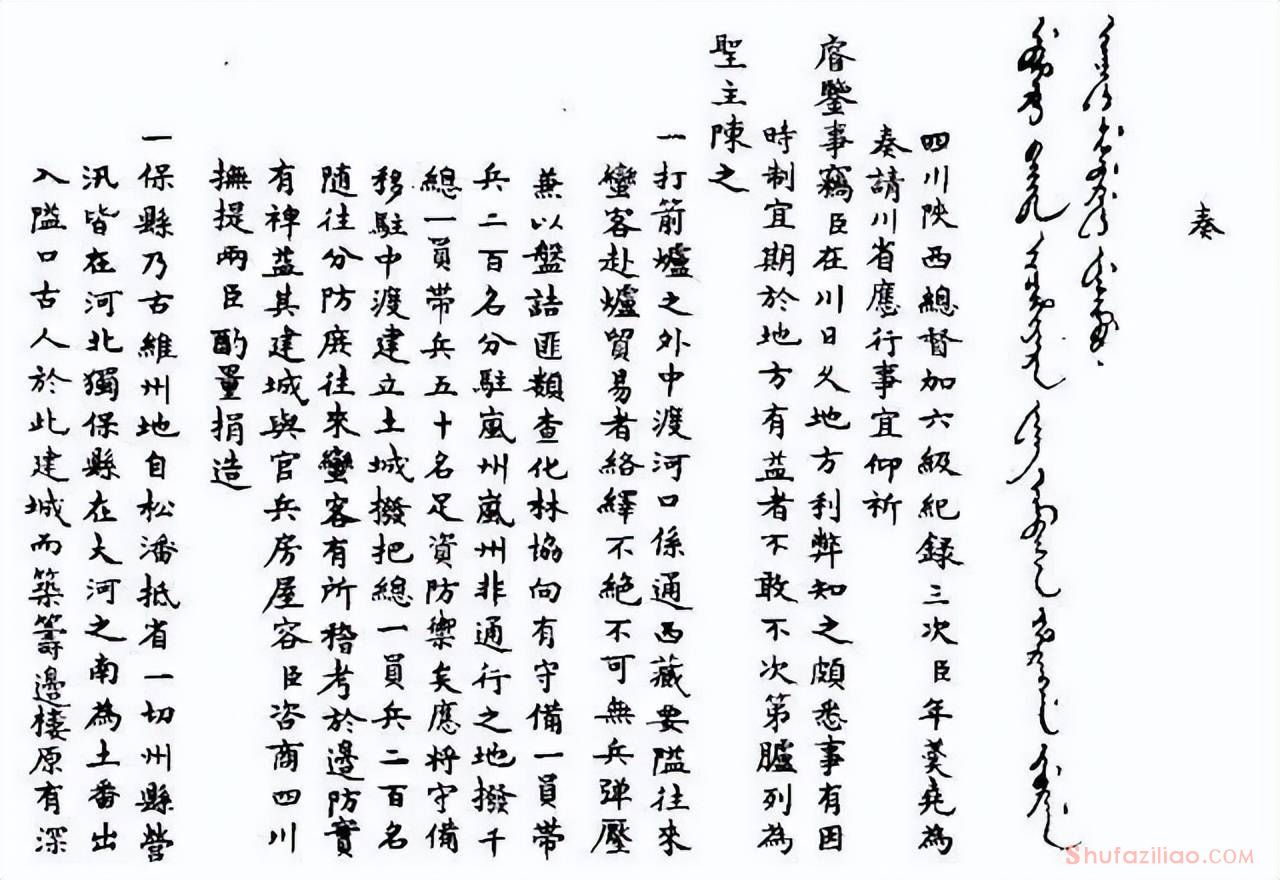 奏
四川陝西總督加六級紀錄三次臣年羹堯為
奏請川省應行事宜仰祈
睿鑒事竊臣在川日久地方利弊知之頗悉事有因
時制宜期於地方有益者不敢不次第臚列為
聖主陳之
一打箭爐之外中渡河口係通西藏要隘往來
蠻客赴爐貿易者絡繹不絕不可無兵弹壓
兼以盤詰匪類查化林協向有守備一員帶
兵二百名分駐嵐州嵐州非通行之地撥千
總一員帶兵五十名足資防禦矣應將守備
移駐中渡建立土城撥把總一員兵二百名
隨往分防庶往來蠻客有所稽考於邊防實
有裨益其建城與官兵房屋容臣咨商四川
撫提兩臣酌量捐造
一保縣乃古維州地自松潘抵省一切州縣營
汛皆在河北獨保縣在大河之南為土番出
入隘口古人於此建城而築籌邊樓原有深
Shufaziliao.COM